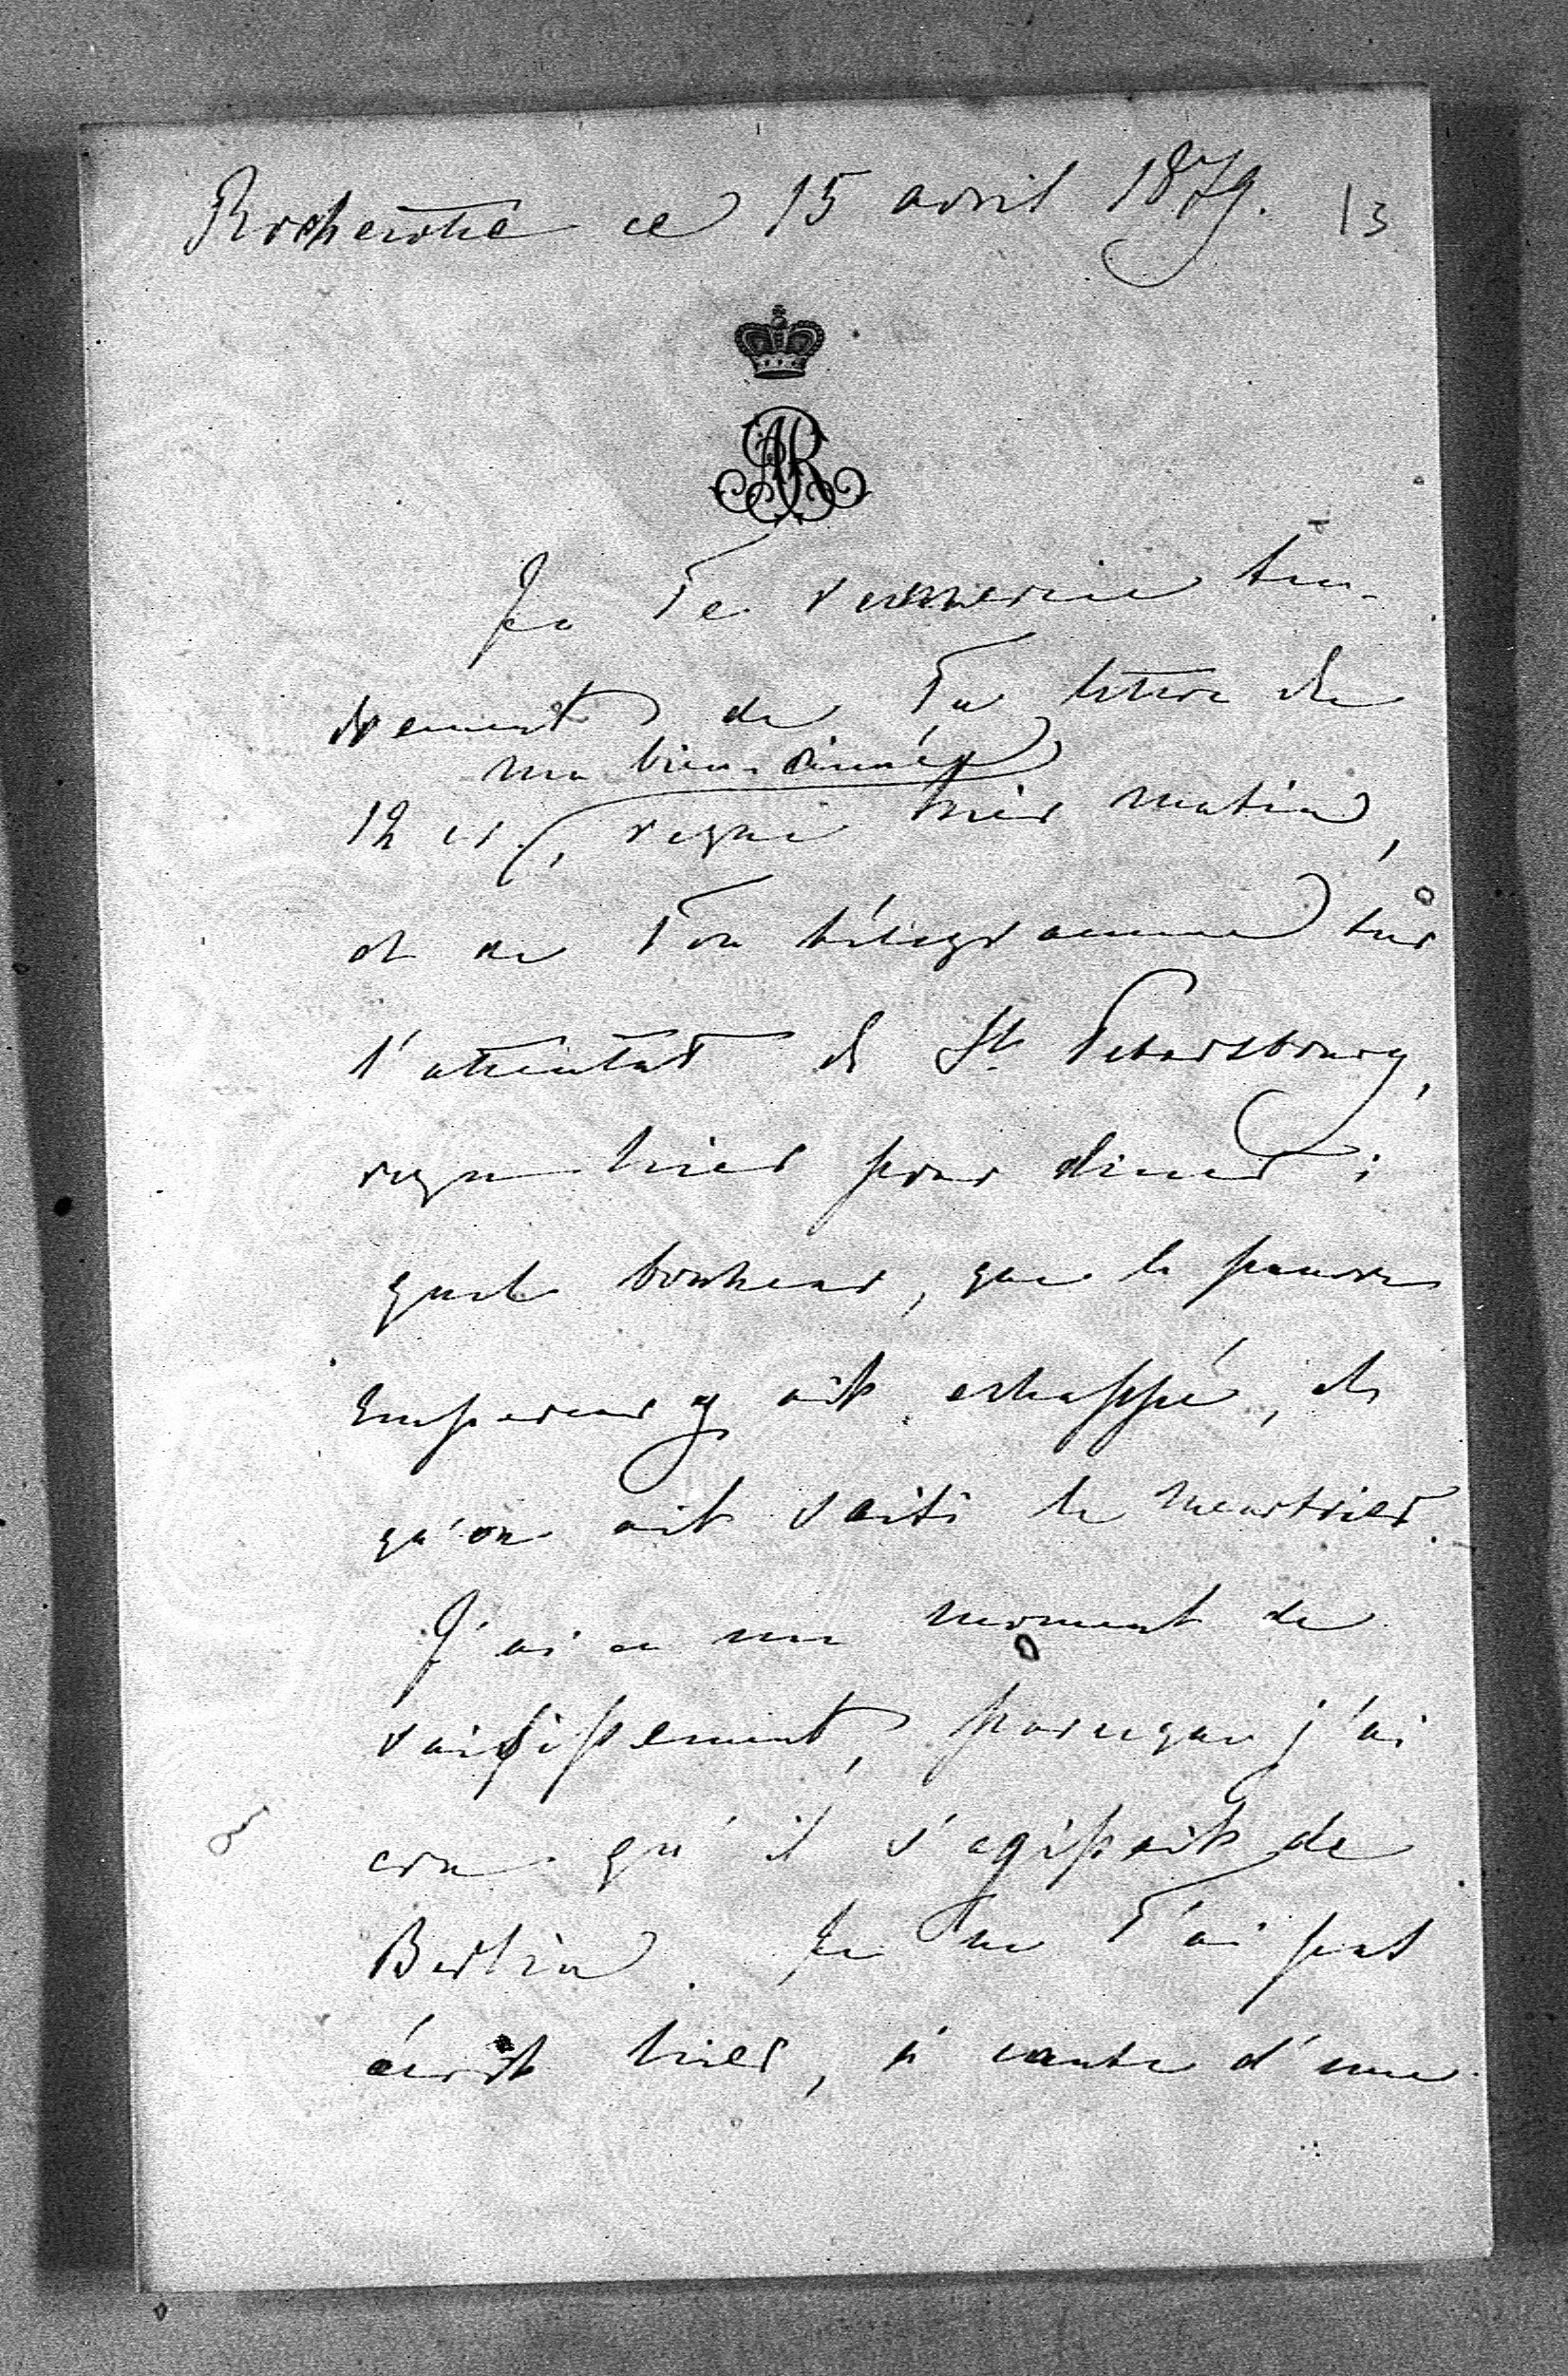 Rochecotte ce 15 avril 1879. 13
AR
Je Te remercie ten-
drement de Ta lettre du
ma bien-aimée
12 ct, reçue hier matin,
et de Ton télégramme sur
l'attentat de St. Petersbourg,
reçu hier pour diner;
quel bonheur, que le pauvre
Empereur y ait echappé, et
qu'on ait saisi le meurtrier.
J'ai eu un moment de
saisissement, parceque j'ai
cru qu'il s'agissait de
Berlin. Je ne T'ai pas
écrit hier, à cause d'une